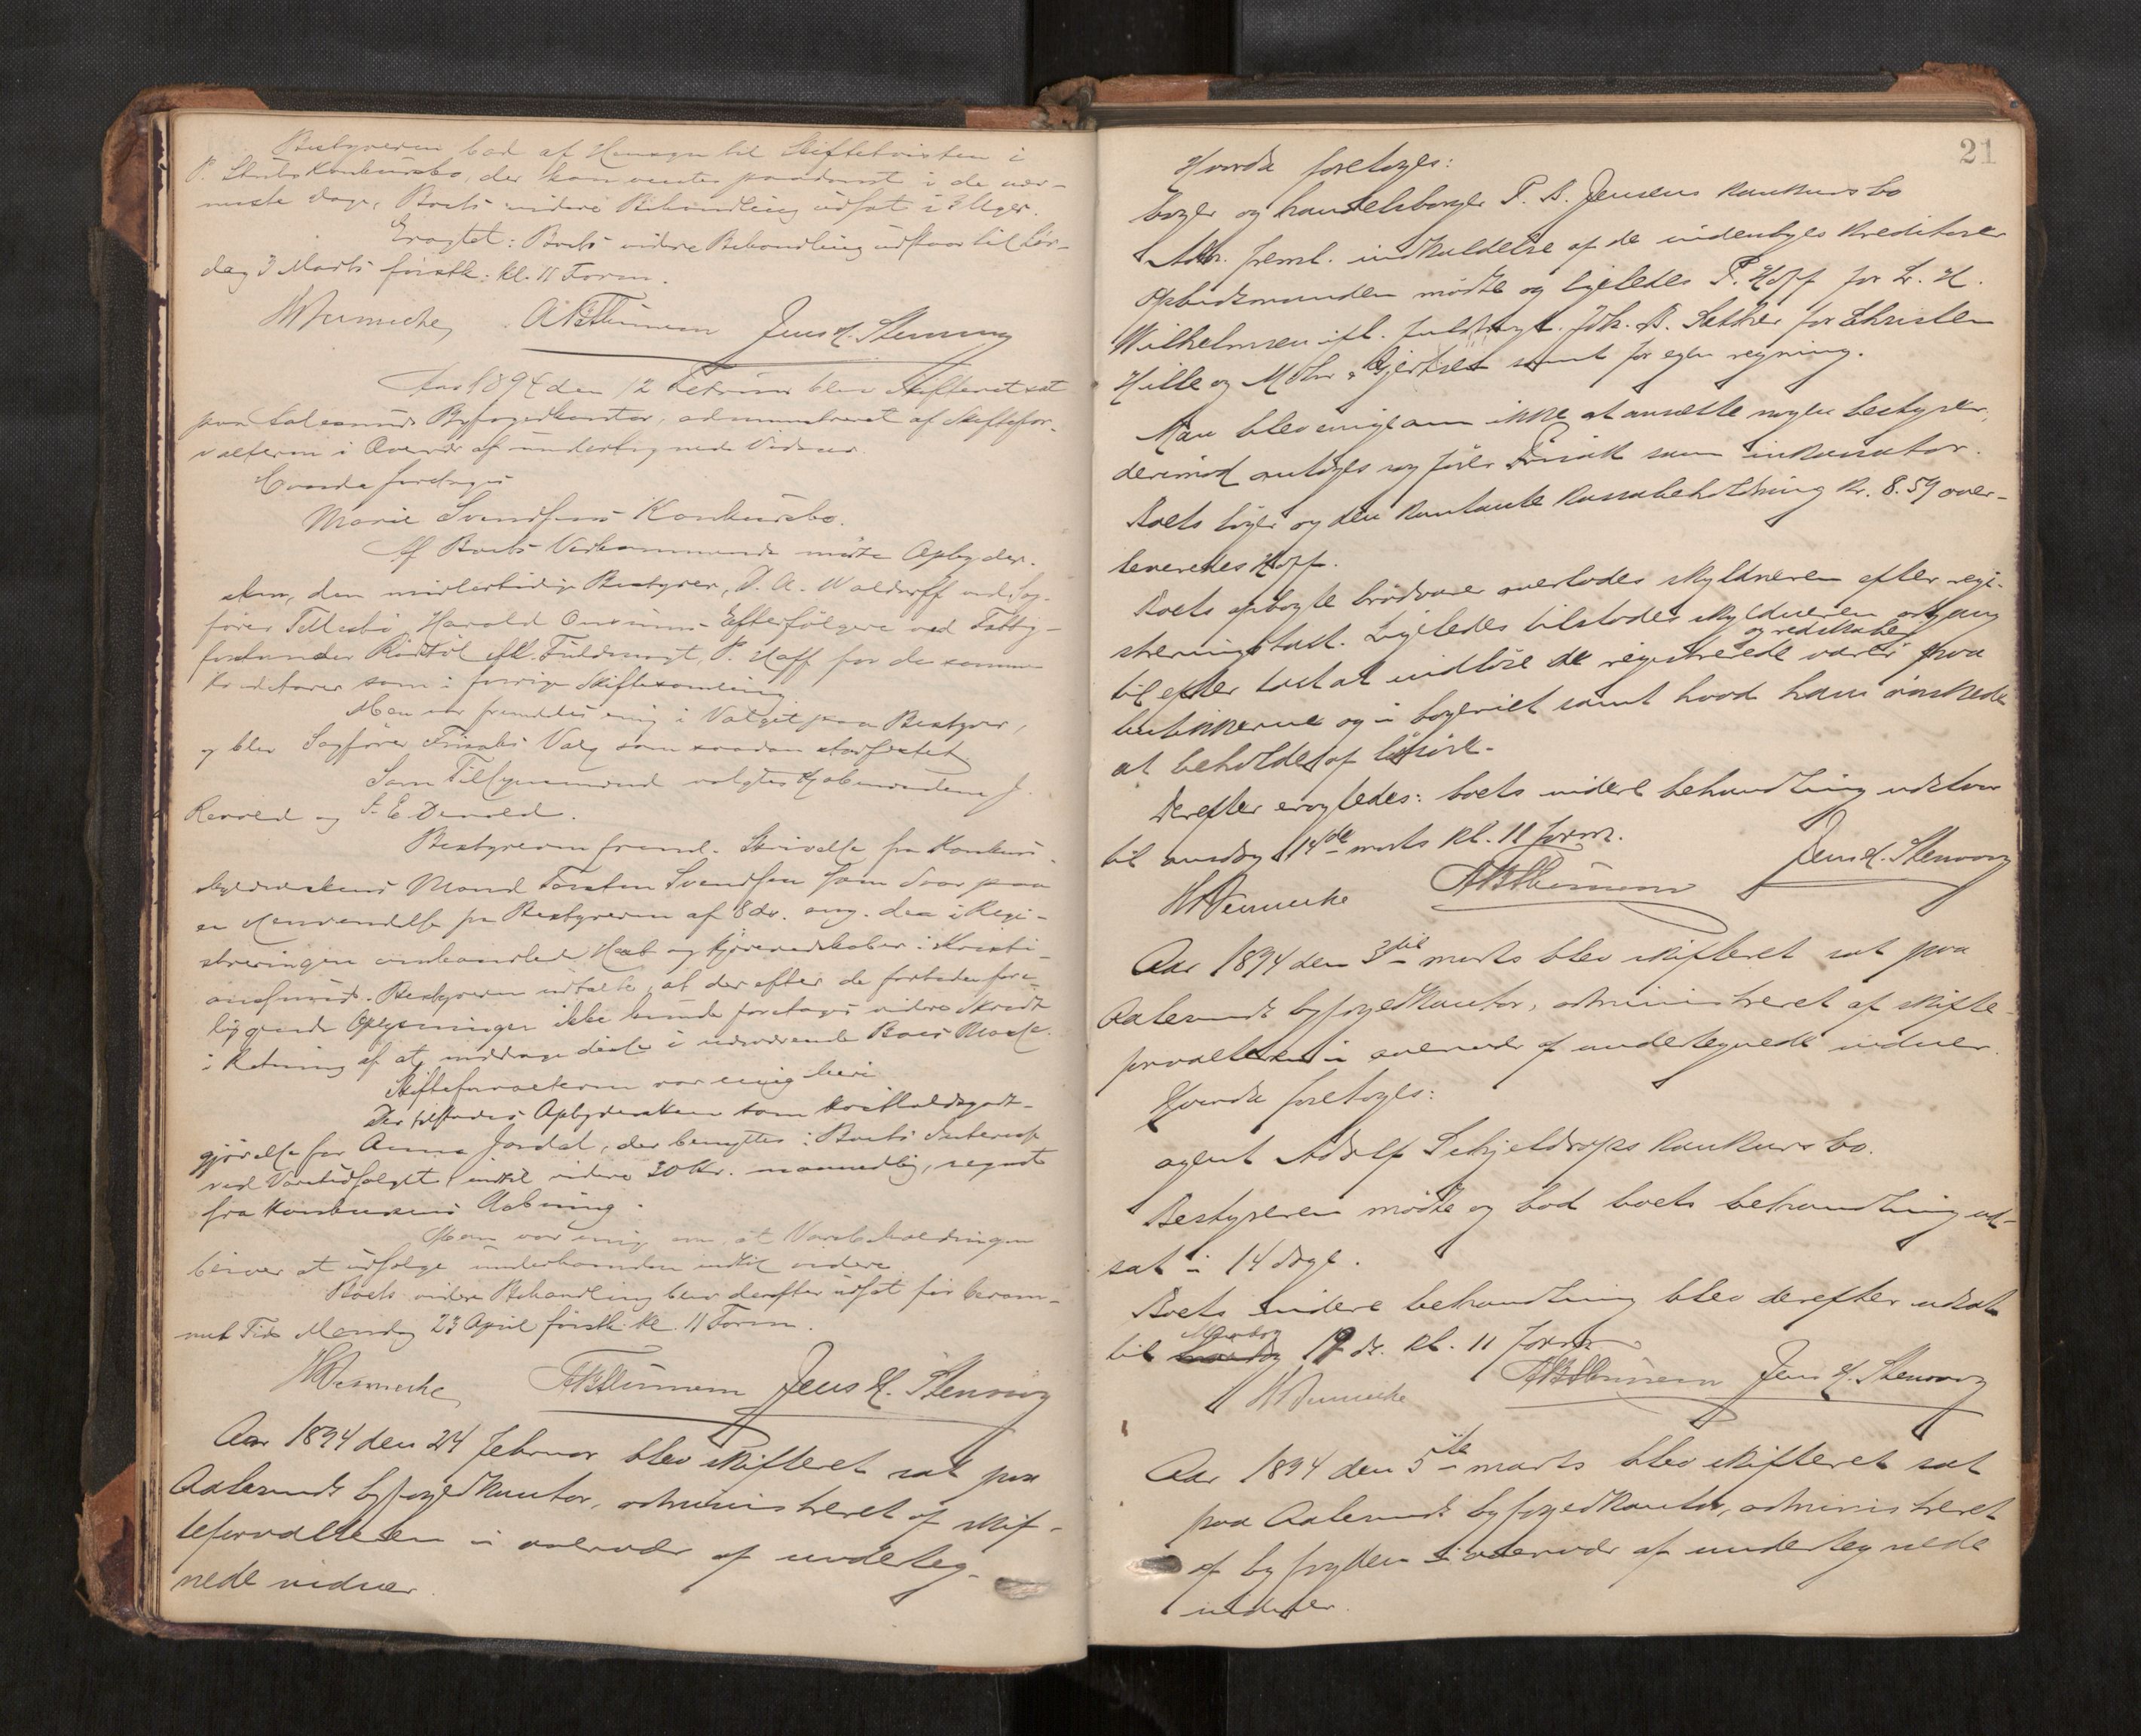 Bestyreren bad af Hensyn til Skiftetvisten i
P. Konkursbo, der kan ventes paadømt i de nær-
meste Dage, Boets videre Behandling udsat i 3 Uger.
Eragtet: Boets videre Behandling udstaar til Lør-
dag 3 Marts førstk. kl. 11 Form.
Jens H. Stenvig
Aar 1894 den 12 Februar blev Skifteret sat
paa Aalesunds Byfogedkontor, administreret af Skiftefor-
valteren i Overvær af undertegnede Vidner.
Hvorda foretoges
Marie Svendsens Konkursbo.
Af Boets Vedkommende mødte Opbyder-
sken, den midlertidige Bestyrer, D. A. Waldorff ved Sag-
fører Harald Efterfølgere ved Fattig-
forstander ifl. Fuldmagt, P. Hoff for de samme
Kreditorer som i forrige Skiftesamling
Man var fremdeles enig i Valget paa Bestyrer,
og blev Sagfører Valg som saadan stadfæstet.
Som Tilsynsmænd valgtes Kjøbmændene J.
og E. Devold.
Bestyreren freml. Skrivelse fra Konkurs-
skyldnerskens Mand Torsten Svendsen som Svar paa
en Henvendelse fra Bestyreren af 8 ds. ang. den i Regi-
streringen omhandlede Hest og Kjøreredskaber i Kristi-
ansund. Bestyreren udtalte, at der efter de forhaanden fore-
liggende Oplysninger ikke kunde foretages videre Skridt
i Retning af at inddrage disse i nærværende Boes Masse.
Skifteforvalteren var enig heri
Der tilstodes Opbydersken som Kostholdsgodt-
gjørelse for Anna Jordal, der benyttes i Boets Interesse
ved Vareudsalget indtil videre 30 Kr. maanedlig, regnet
fra Konkursens Aabning.
Man var enig om, at Varebeholdningen
bliver at udsælge underhaanden indtil videre
Boets videre Behandling blev derefter udsat til beram-
met Tid Mandag 23 April førstk. kl. 11 Form.
Jens H. Stenvig
Aar 1894 den 24 februar blev skifteret sat paa
Aalesunds byfogedkontor, administreret af skif-
teforvalteren i overvær af underteg-
nede vidner.
21
Hvorda foretoges:
bager og handelsborger P. B. Jensens konkursbo
Adm. freml. indkaldelse af de indenbyes kreditorer
Opbudsmanden mødte og ligeledes P. Hoff for L. H.
Wilhelmsen ifl. fuldmagt. Joh. B. Sæther for Christen
Hille og Mohr & Gjertsen samt for egen regning.
Man blev enige om ikke at ansætte nogen bestyrer,
derimod antoges sagfører som inkassator.
Boets bøger og den kontante kassabeholdning kr. 8.59 over-
leveredes Hoff.
Boets opbagte brødvarer overlodes skyldneren efter regi-
streringstakst. Ligeledes tilstodes skyldneren adgang
til efter takst at indløse de registrerede varer og redskaber paa
butikkerne og i bageriet samt hvad han ønskede
at beholde af løsøre.
Derefter eragtedes: boets videre behandling udstaar
til onsdag 14de marts kl. 11 form.
Jens H. Stenvig
Aar 1894 den 3die marts blev skifteret sat paa
Aalesunds byfogedkontor, administreret af skifte-
forvalteren i overvær af undertegnede vidner.
Hvorda foretoges:
agent Adolf Schjeldrops konkursbo.
Bestyreren mødte og bad boets behandling ud-
sat i 14 dage.
Boets videre behandling blev derefter udsat
til Mandag 19 ds. kl. 11 form
Jens H. Stenvig
Aar 1894 den 5te marts blev skifteret sat
paa Aalesunds byfogedkontor, administreret
af byfogden i overvær af undertegnede
vidner.